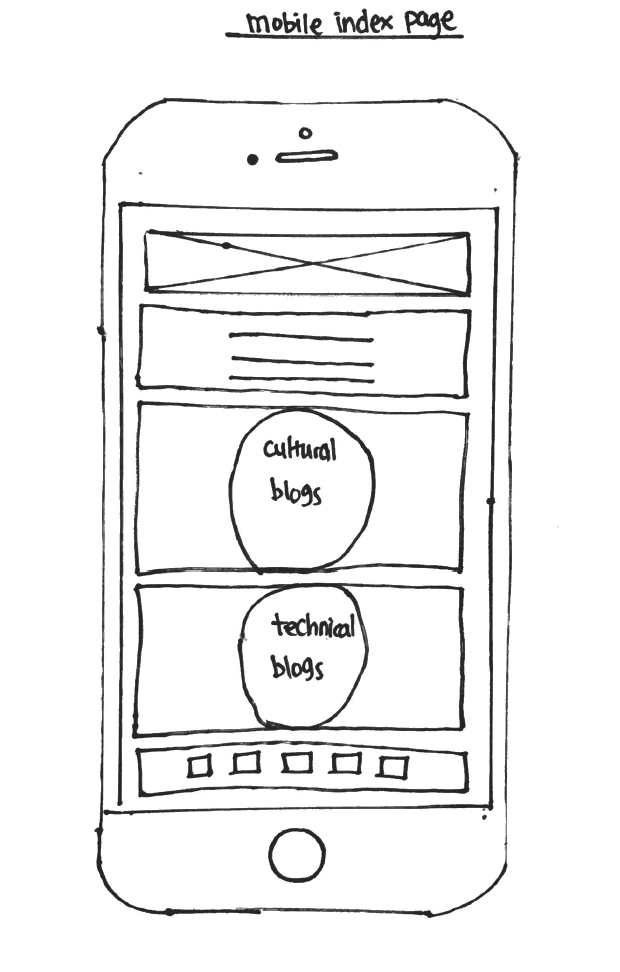 mobile index page
cultural
blogs
technical
blogs